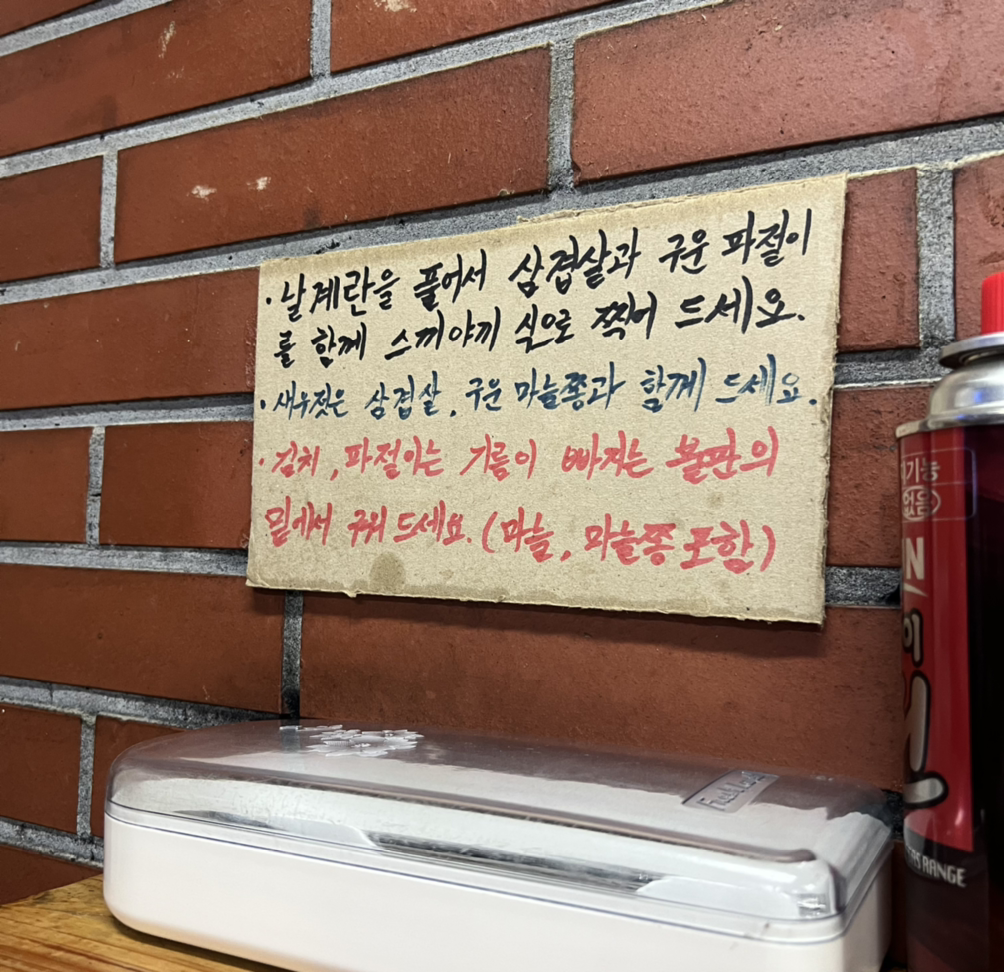 · 날계란을 풀어서 삼겹살과 구운 파절이
를 함께 스끼야끼 식으로 찍어 드세요.
· 새우젓은 삼겹살, 구운 마늘쫑과 함께 드세요.
· 김치, 파절이는 기름이 빠지는 불판의
밑에서 구워 드세요. (마늘, 마늘쫑 포함)
기능
없음
RANGE